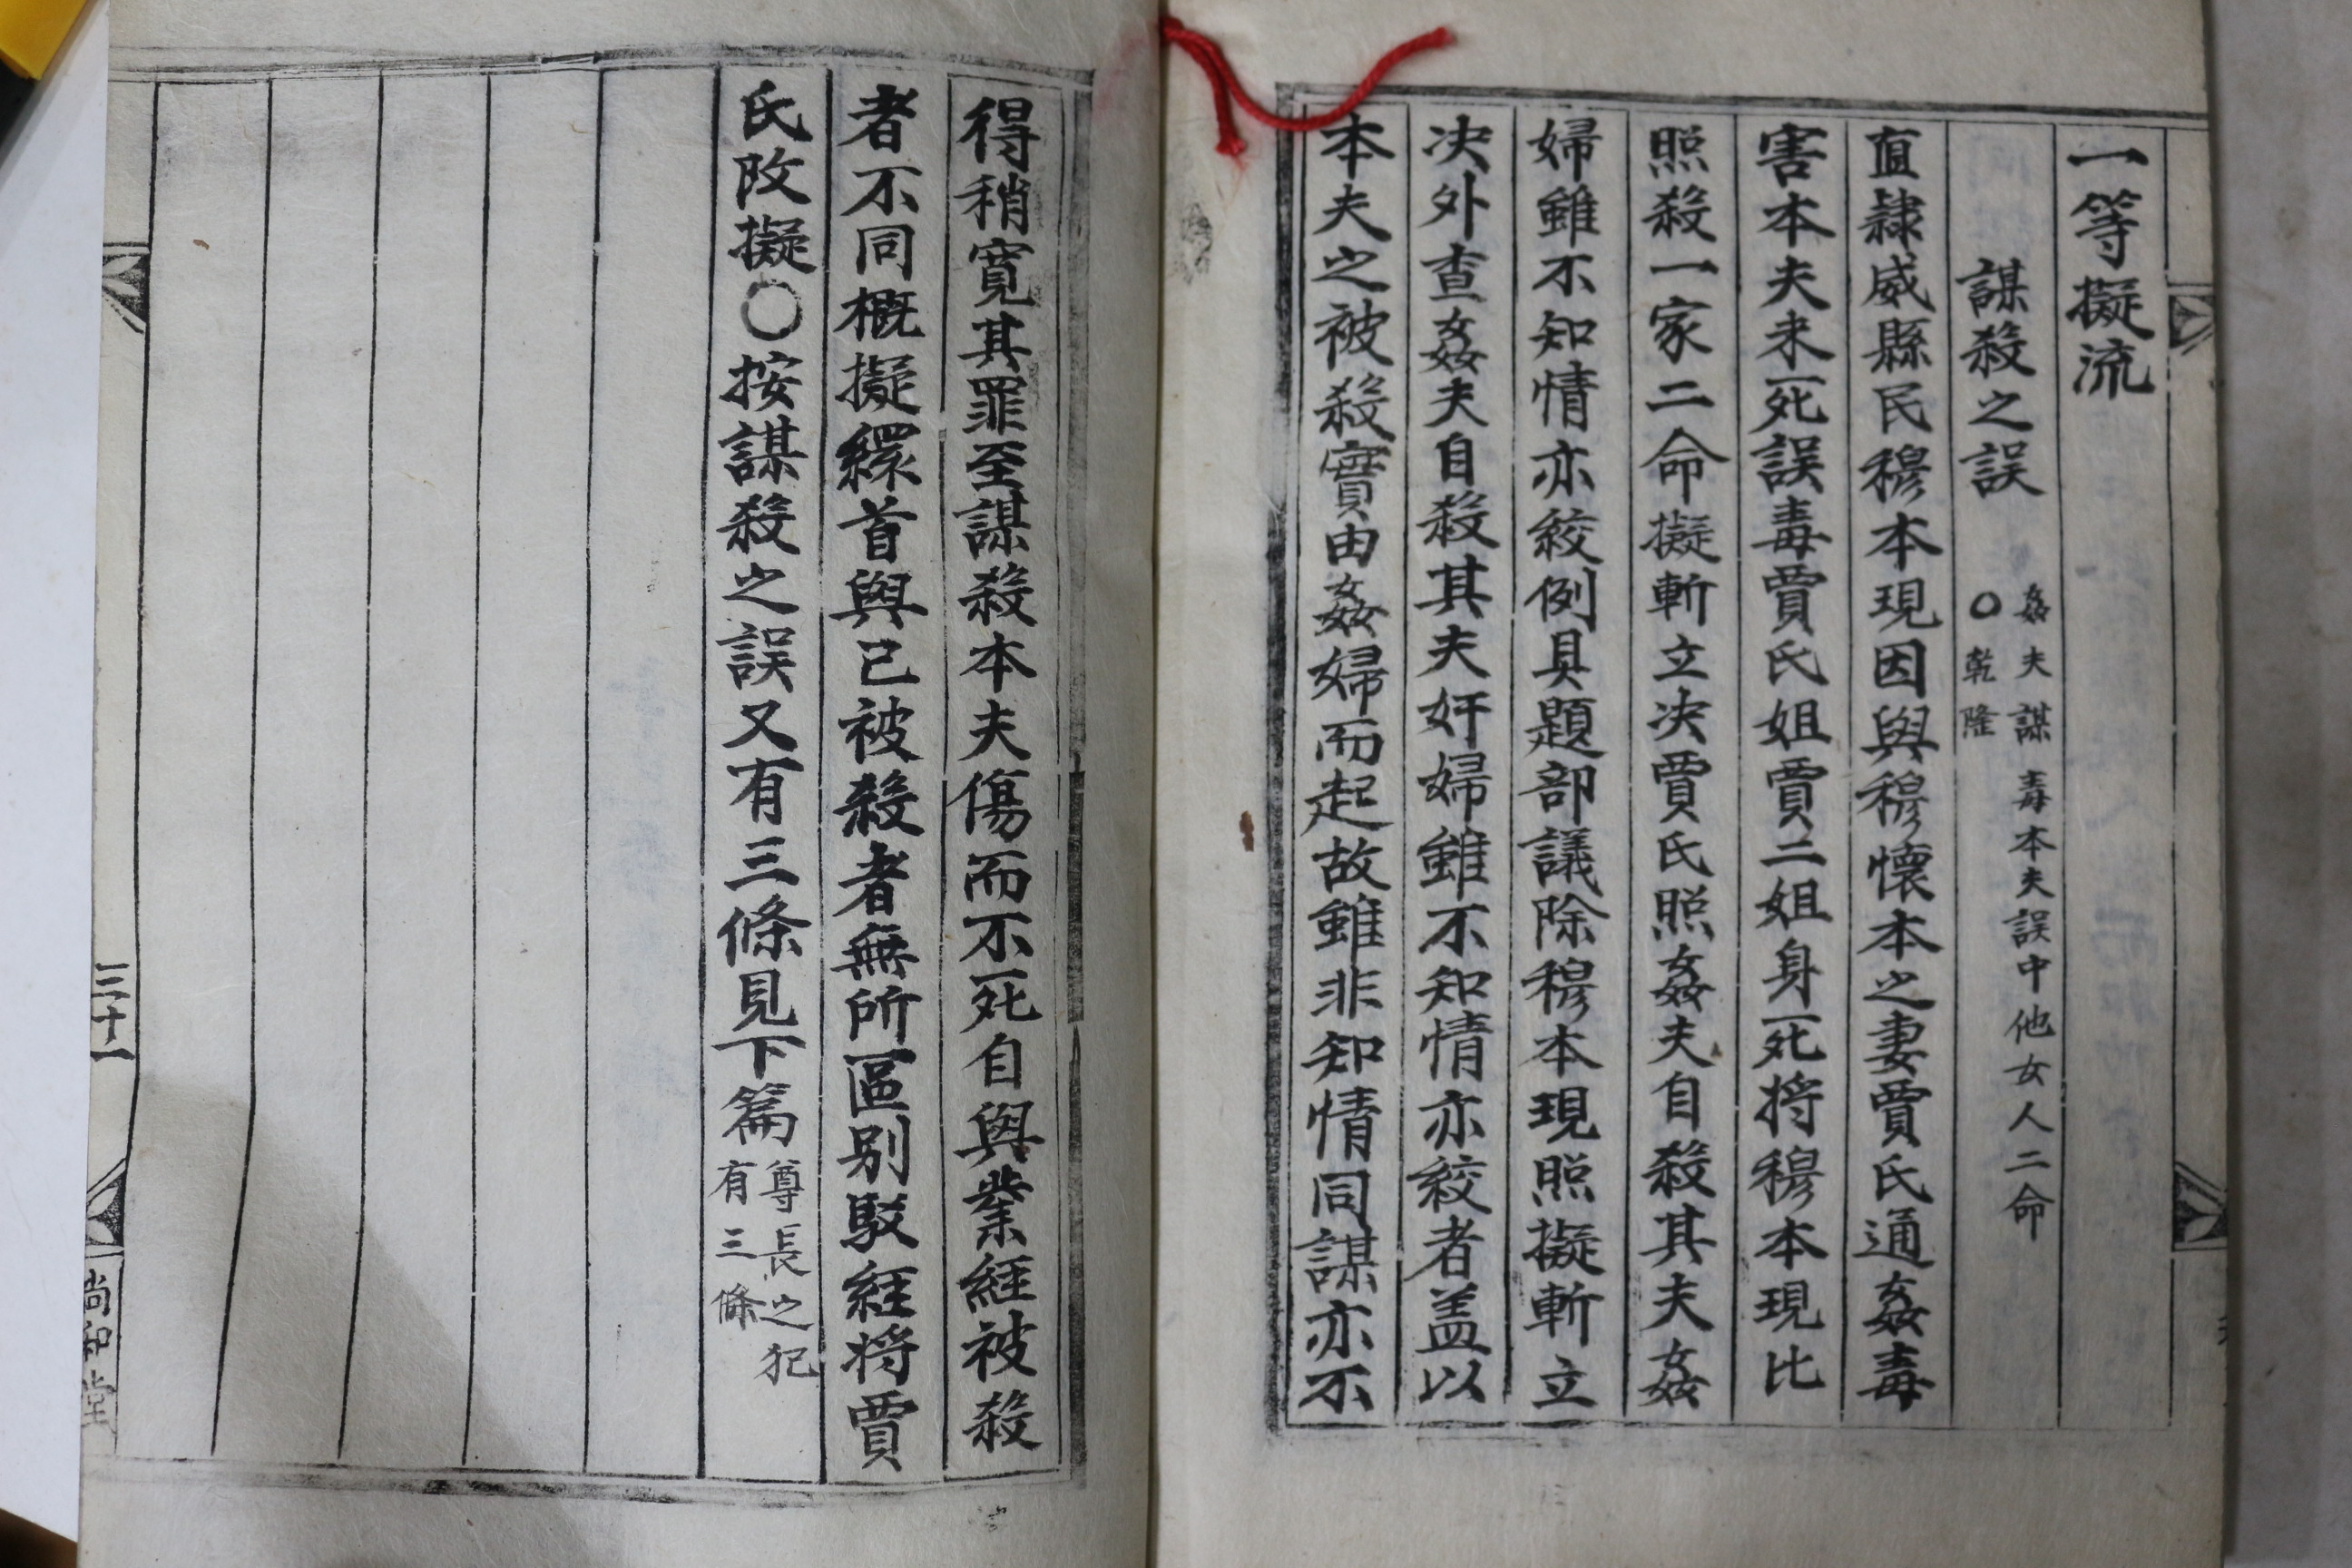 一等擬流
謀殺之誤
姦夫謀毒本夫誤中他女人二命
〇乾隆
直隷威縣民穆本現因與穆懷本之妻賈氏通姦毒
害本夫未死誤毒賈氏姐賈二姐身死將穆本現比
照殺一家二命擬斬立决賈氏照姦夫自殺其夫姦
婦雖不知情亦絞例具題部議除穆本現照擬斬立
决外查姦夫自殺其夫奸婦雖不知情亦絞者盖以
本夫之被殺實由姦婦而起故雖非知情同謀亦不
得稍寬其罪至謀殺本夫傷而不死自與業經被殺
者不同概擬繯首與已被殺者無所區别駁經將賈
氏改擬〇按謀殺之誤又有三條見下篇
尊長之犯
有三條
三十一
尚和堂